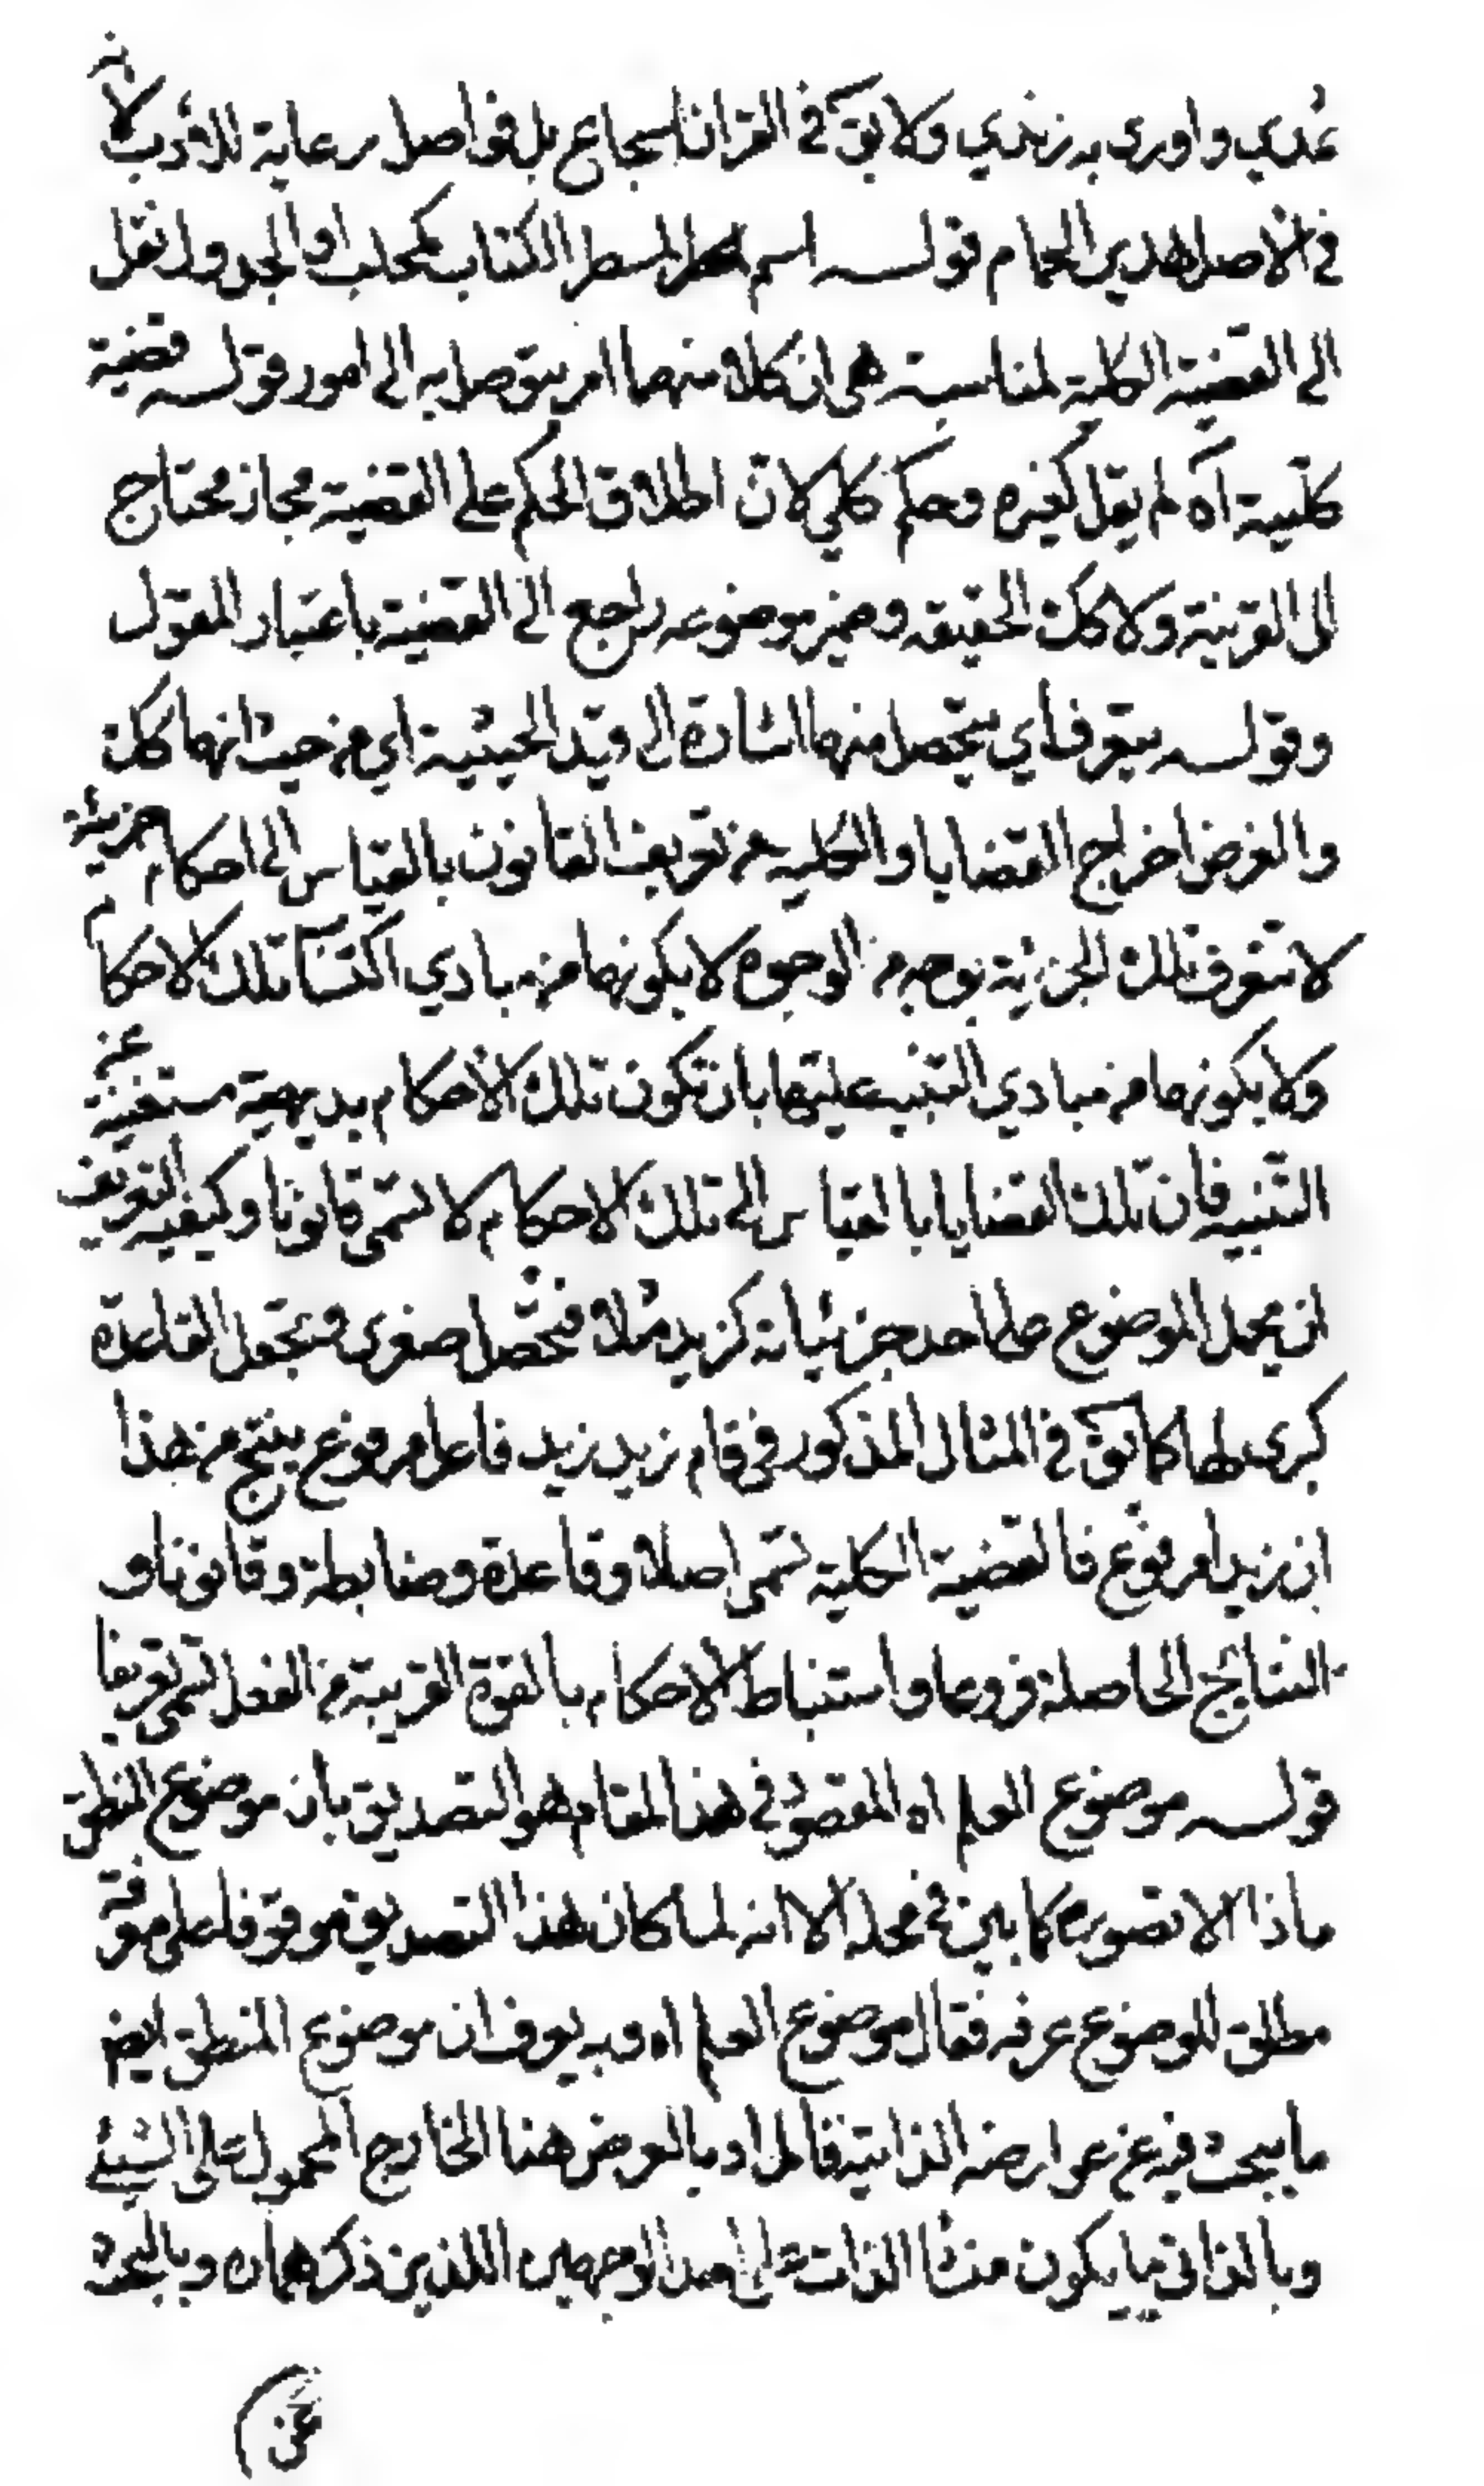 عُدي واورى به زندي ولا يق في القران اسجاع بل فواصل رعاية للادب لانه
في الاصل هدير الحمام قوله اسم المسطر الكتاب كمحلب او الجدول نقل
الى القضية الكلية لمناسبة هى ان كلا منهما امر يتوصل به الى امور قوله قضية
كلّية آه لم يقل كغيره وحكم كلي لان اطلاق الحكم على القضية مجاز محتاج
الى القرينة ولا كك الحقيقه وضمير موضوعه راجع الى القضية باعتبار المقول
وقوله يتعرف اي يتحصل منها اشارة الى قيد الحيثية اي من حيث انها كك
والغرض اخراج القضايا والكليه عن تعريف القانون بالقياس الى احكام جزيئة
لا تتعرف تلك الجزئية بوجه من الوجوه لا بكونها من مبادي اكتساب تلك الاحكام
ولا بكونها من مبادي التنبيه عليها بان تكون تلك الاحكام بديهية مستغنية عن
التنبيه فان تلك القضايا بالقياس الى تلك الاحكام لا تسمى قانونا وكيفية التعريف
ان يحمل الموضوع على احد جزئياته كزيد مثلا فتحصل صغرى فتجعل القاعدة
كبرى لها كما يق في المثال المذكور في قام زيد زيد فاعل مرفوع ينتج من هذا
ان زيدا مرفوع فالقضية الكلية تسمى اصلا وقاعدة وضابطة وقانونا و
النتائج الحاصلة فروعا واستنباط الاحكام بالقوة القريبة من الفعل تسمى تعريفا
قوله موضوع العلم اه المقصود في هذا المقام هو التصديق بان موضوع المنطق
ماذا لا تصوره كما بين في محله الا انه لما كان هذا التصديق موقوفا على معرفة
مطلق الموضوع عرفه فقال موضوع العلم اه وبه يعرف ان موضوع المنطق ايضا
ما يبحث فيه عن عوارضه الذاتية فالمراد بالعرض هنا الخارج المحمول على الشيئ
وبالذاتي ما يكون منشا الذات على احد الوجهين اللذين ذكرهما وبالبحث